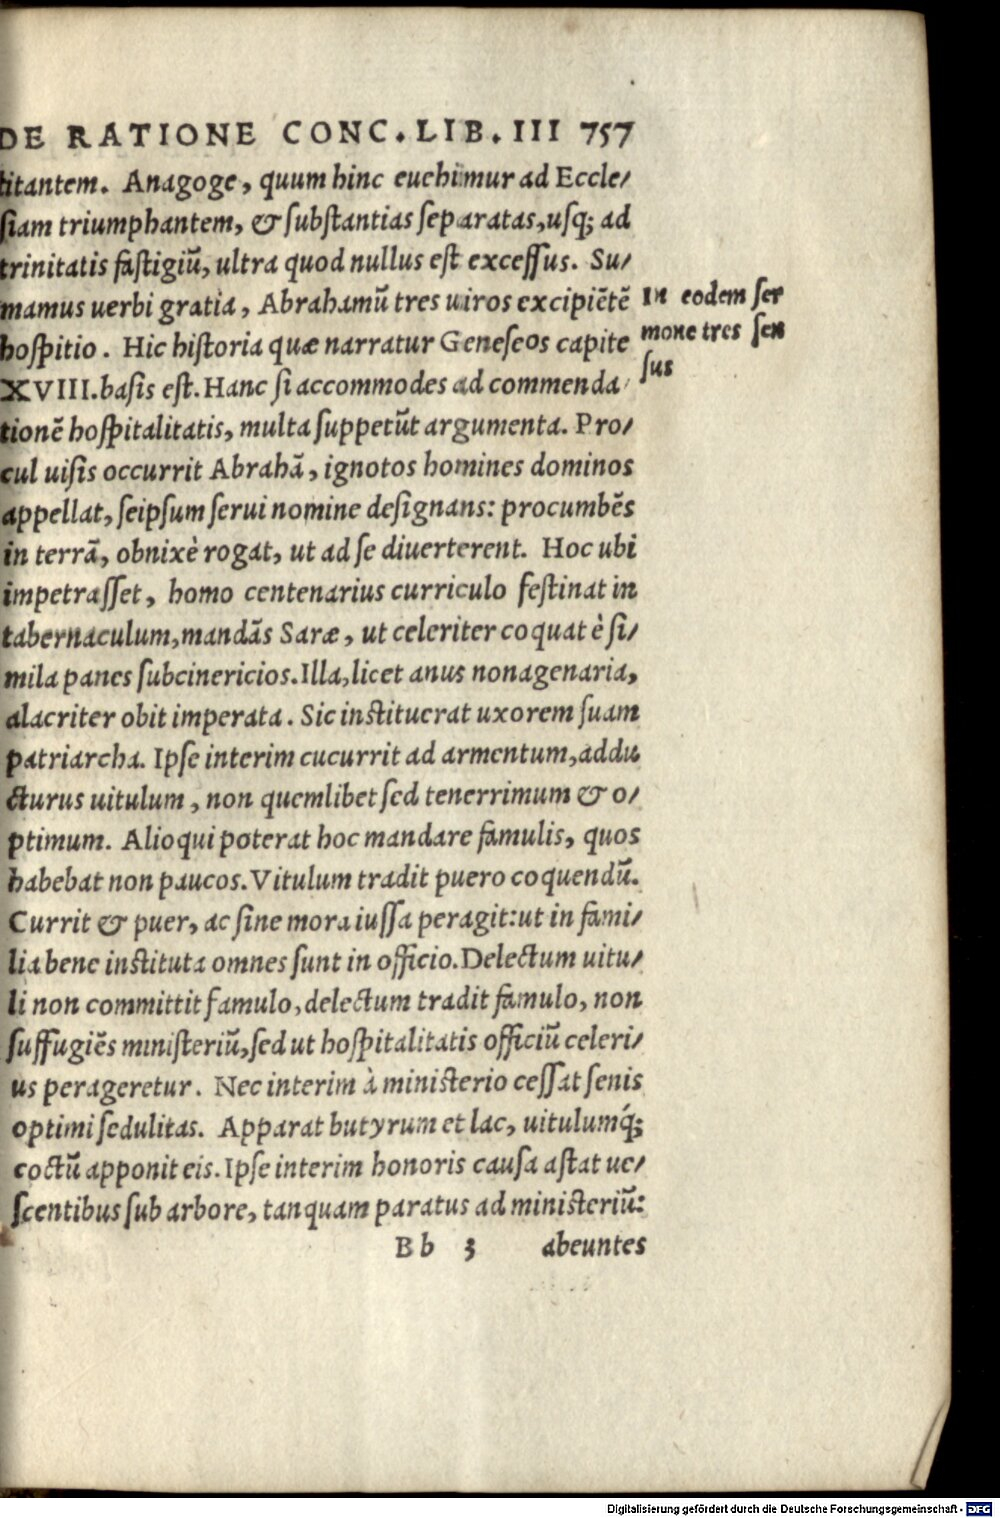 DE RATIONE CONC. LIB. III 757
titantem. Anagoge, quum hinc euehimur ad Eccle/
siam triumphantem, & substantias separatas, usq; ad
trinitatis fastigiũ, ultra quod nullus est excessus. Su/
mamus uerbi gratia, Abrahamũ tres uiros excipiẽtẽ
hospitio. Hic historia quæ narratur Geneseos capite
XVIII. basis est. Hanc si accommodes ad commenda/
tionẽ hospitalitatis, multa suppetũt argumenta. Pro/
cul uisis occurrit Abrahã, ignotos homines dominos
appellat, seipsum serui nomine designans: procumbẽs
in terrã, obnixè rogat, ut ad se diuerterent. Hoc ubi
impetrasset, homo centenarius curriculo festinat in
tabernaculum, mandãs Saræ, ut celeriter coquat è si/
mila panes subcinericios. Illa, licet anus nonagenaria,
alacriter obit imperata. Sic instituerat uxorem suam
patriarcha. Ipse interim cucurrit ad armentum, addu
cturus uitulum, non quemlibet sed tenerrimum & o/
ptimum. Alioqui poterat hoc mandare famulis, quos
habebat non paucos. Vitulum tradit puero coquendũ.
Currit & puer, ac sine mora iussa peragit: ut in fami/
lia bene instituta omnes sunt in officio. Delectum uitu/
li non committit famulo, delectum tradit famulo, non
suffugiẽs ministeriũ, sed ut hospitalitatis officiũ celeri/
us perageretur. Nec interim à ministerio cessat senis
optimi sedulitas. Apparat butyrum et lac, uitulumq́;
coctũ apponit eis. Ipse interim honoris causa astat ue/
scentibus sub arbore, tanquam paratus ad ministeriũ:
Bb 3 abeuntes
In eodem ser
mone tres sen
sus
Digitalisierung gefördert durch die Deutsche Forschungsgemeinschaft - DFG